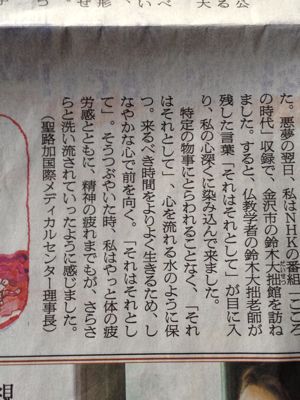 た。悪夢の翌日、私はNHKの番組「こころ
の時代」収録で、金沢市の鈴木大拙館を訪ね
ました。すると、仏教学者の鈴木大拙老師が
残した言葉「それはそれとして」が目に入
り、私の心深くに染み込んで来ました。
特定の物事にとらわれることなく、「それ
はそれとして」、心を流れる水のように保
つ。来るべき時間をよりよく生きるため、し
なやかな心で前を向く。「それはそれとし
て」。そうつぶやいた時、私はやっと体の疲
労感とともに、精神の疲れまでもが、さらさ
らと洗い流されていったように感じました。
（聖路加国際メディカルセンター理事長）